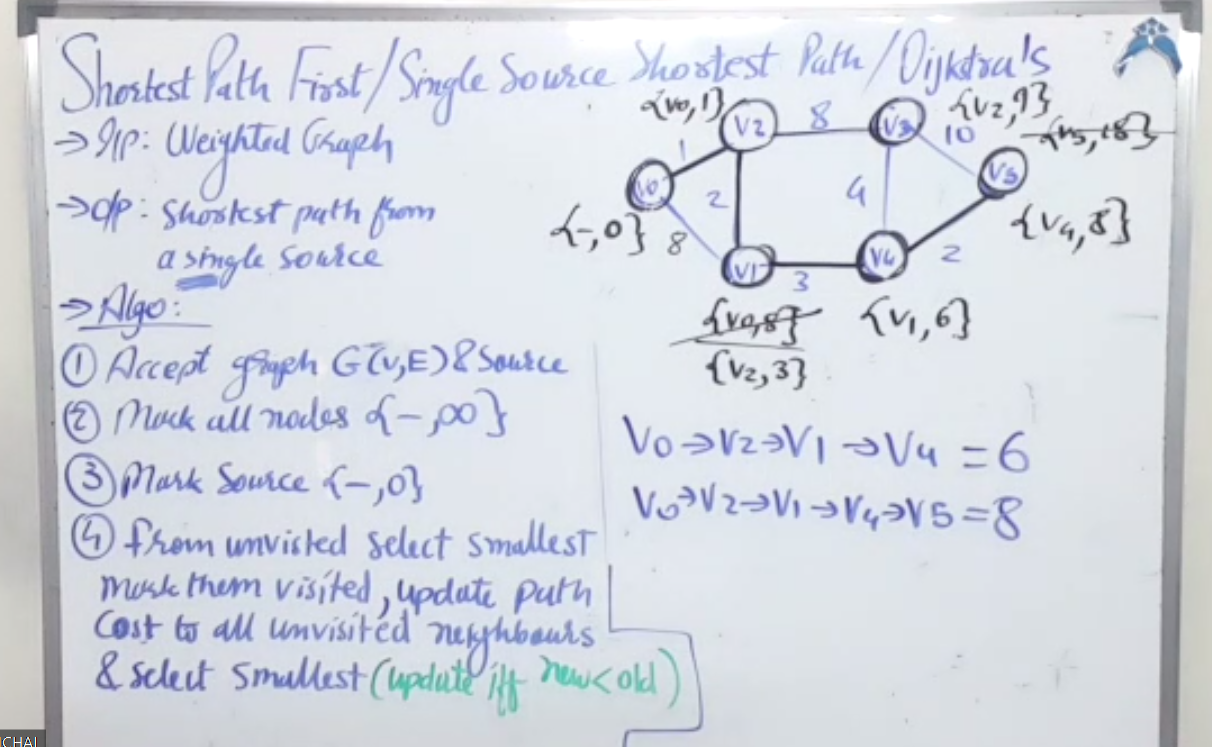 Shortest Path First/Single Source Shortest Path/Dijkstra's
→ I/P: Weighted Graph
→ O/P: Shortest path from
a single source
→ Algo:
① Accept graph G(V,E) & Source
② Mark all nodes {-,∞}
③ Mark Source {-,0}
④ from unvisted select smallest
mark them visited, update path
cost to all unvisited neighbours
& select smallest (update iff new<old)
{V0,1}
V2
8
V3
{V2,9}
10
{V3,18}
1
V0
2
4
V5
{-,0}
8
{V4,8}
V1
3
V4
2
{V0,8}
{V1,6}
{V2,3}
V0→V2→V1→V4 = 6
V0→V2→V1→V4→V5 = 8
CHAI